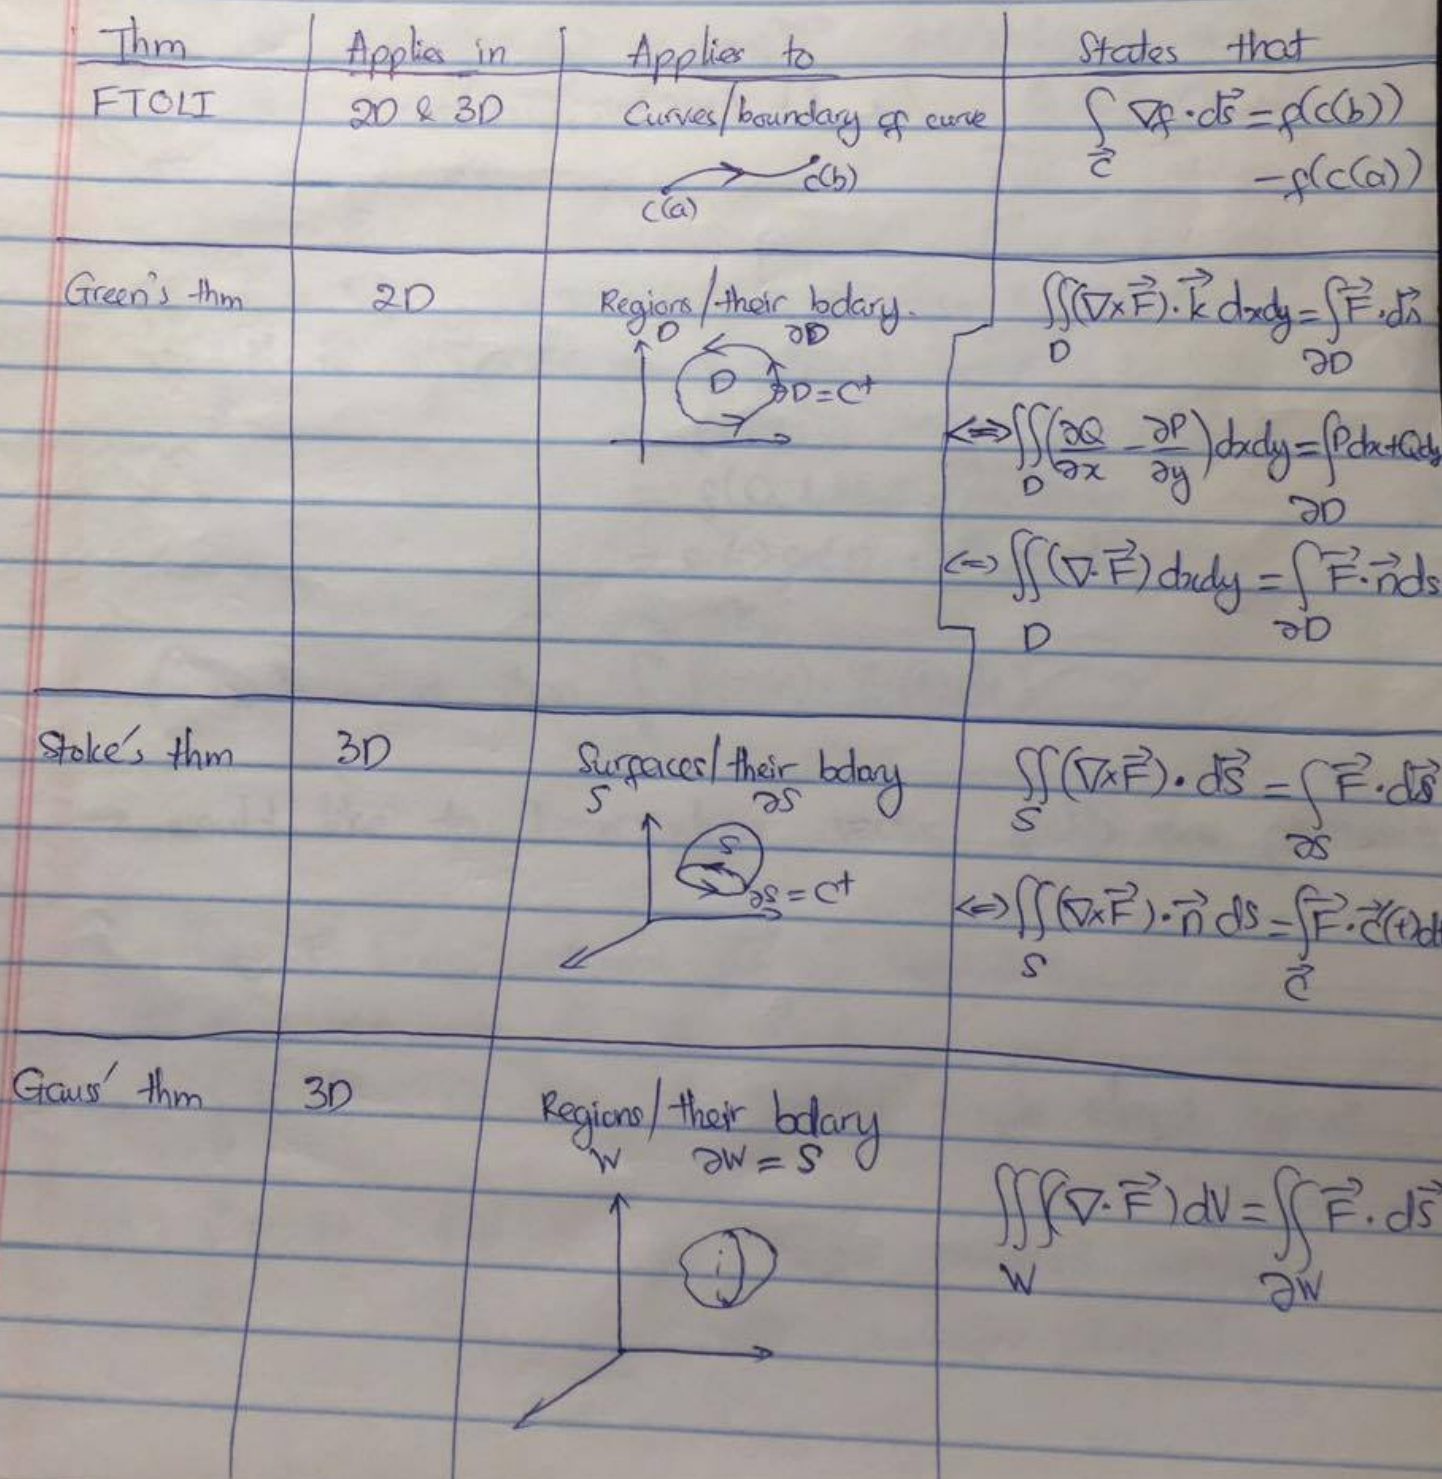 Thm Applies in Applies to States that
FTOLI 2D & 3D Curves/boundary of curve ∫ ∇f · ds⃗ = f(c(b))
c⃗ - f(c(a))
c(b)
c(a)
Green's thm 2D Regions/their bdary. ∬(∇×F⃗)·k⃗ dxdy = ∫F⃗·ds⃗
D ∂D D ∂D
D ∂D = C⁺
<=> ∬(∂Q/∂x - ∂P/∂y)dxdy = ∫Pdx+Qdy
D ∂D
<=> ∬(∇·F⃗) dxdy = ∫F⃗·n⃗ds
D ∂D
Stoke's thm 3D Surfaces/their bdary ∬(∇×F⃗)·dS⃗ = ∫F⃗·ds⃗
S ∂S S ∂S
S
∂S = C⁺ <=> ∬(∇×F⃗)·n⃗ dS = ∫F⃗·c⃗'(t)dt
S c⃗
Gauss' thm 3D Regions/their bdary
W ∂W = S
∭(∇·F⃗)dV = ∬F⃗·dS⃗
W ∂W